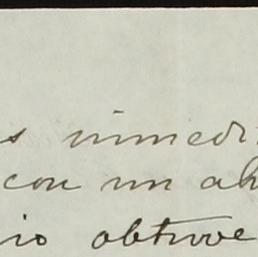 s inmedi
con un ah
io obtuve